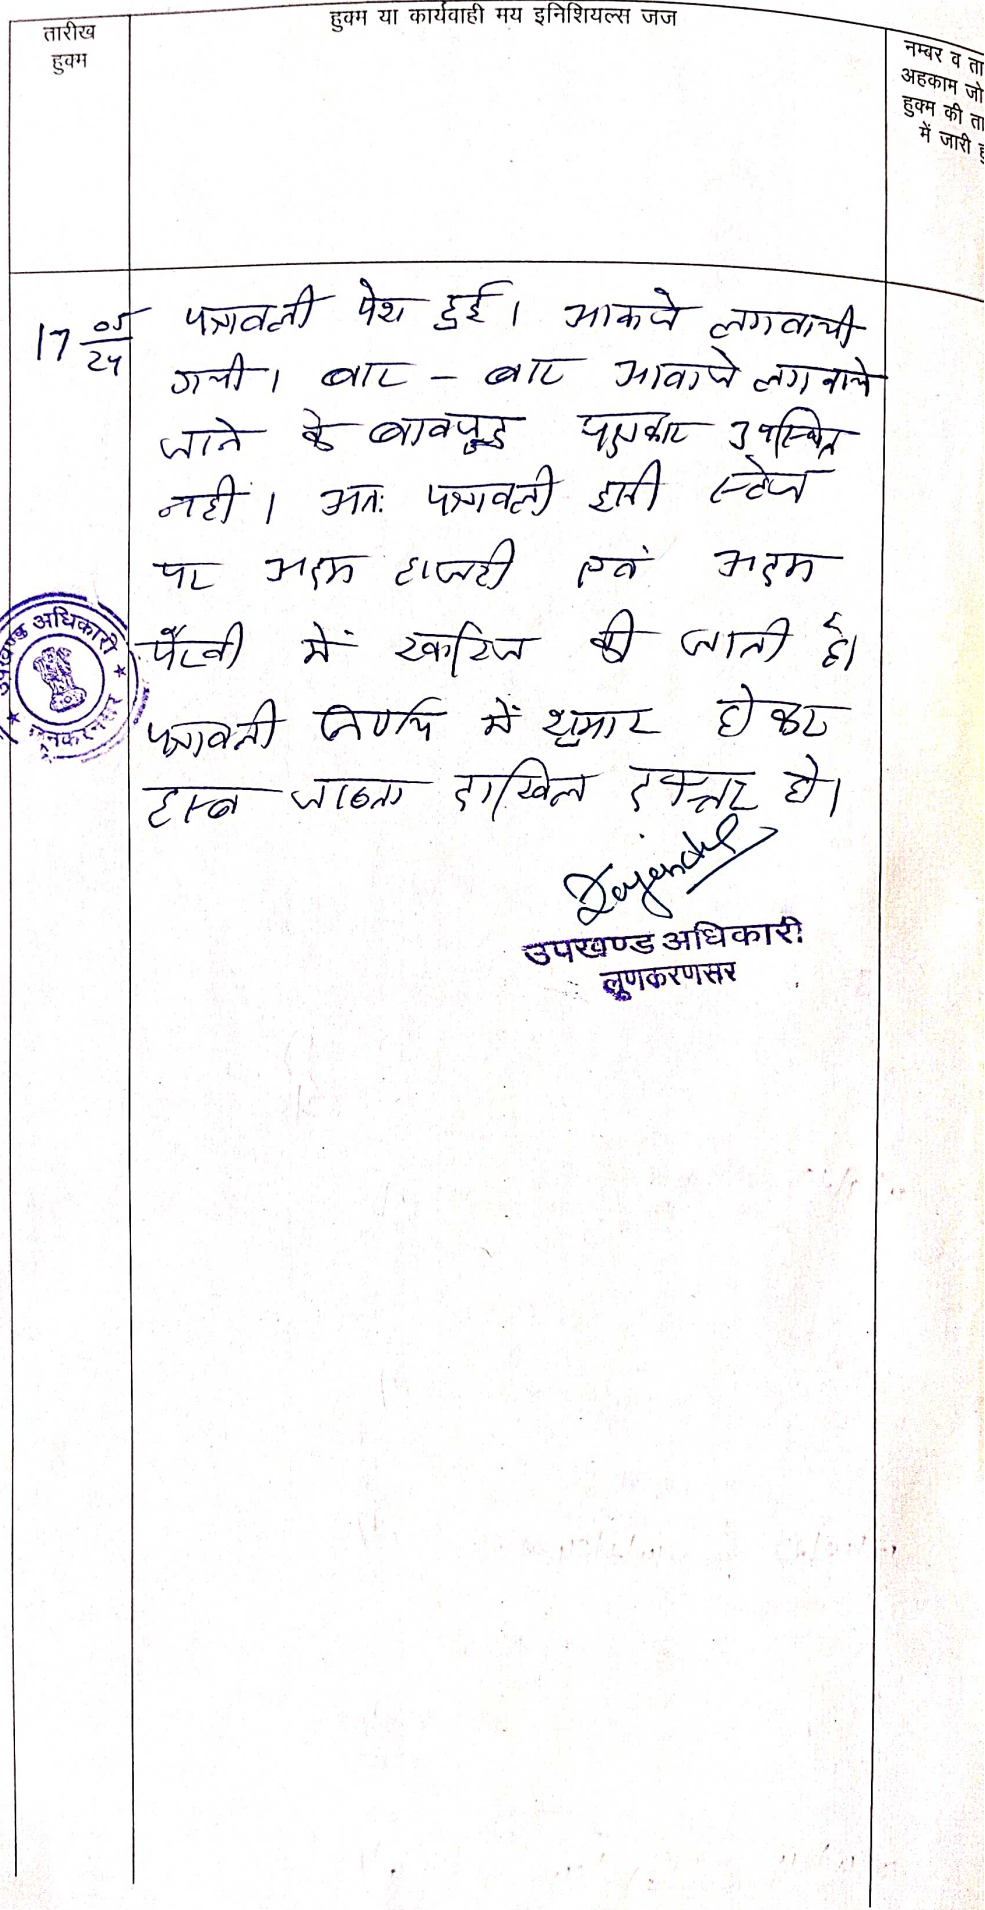 तारीख
हुक्म
हुक्म या कार्यवाही मय इनिशियल्स जज
नम्बर व ता
अहकाम जो
हुक्म की ता
में जारी हु
17 05/24
पत्रावली पेश हुई। आवाजे लगवायी
गयी। बार - बार आवाजे लगवाये
जाने के बावजूद पक्षकार उपस्थित
नही। अतः पत्रावली इसी स्टेज
पर अदम हाजरी एवं अदम
पैरवी में खारिज की जाती है।
पत्रावली निर्णय में शुमार होकर
हस्ब जाब्ता दाखिल दफ्तर हो।
Rajendra
उपखण्ड अधिकारी
लूणकरणसर
उपखण्ड अधिकारी
लूनकरनसर